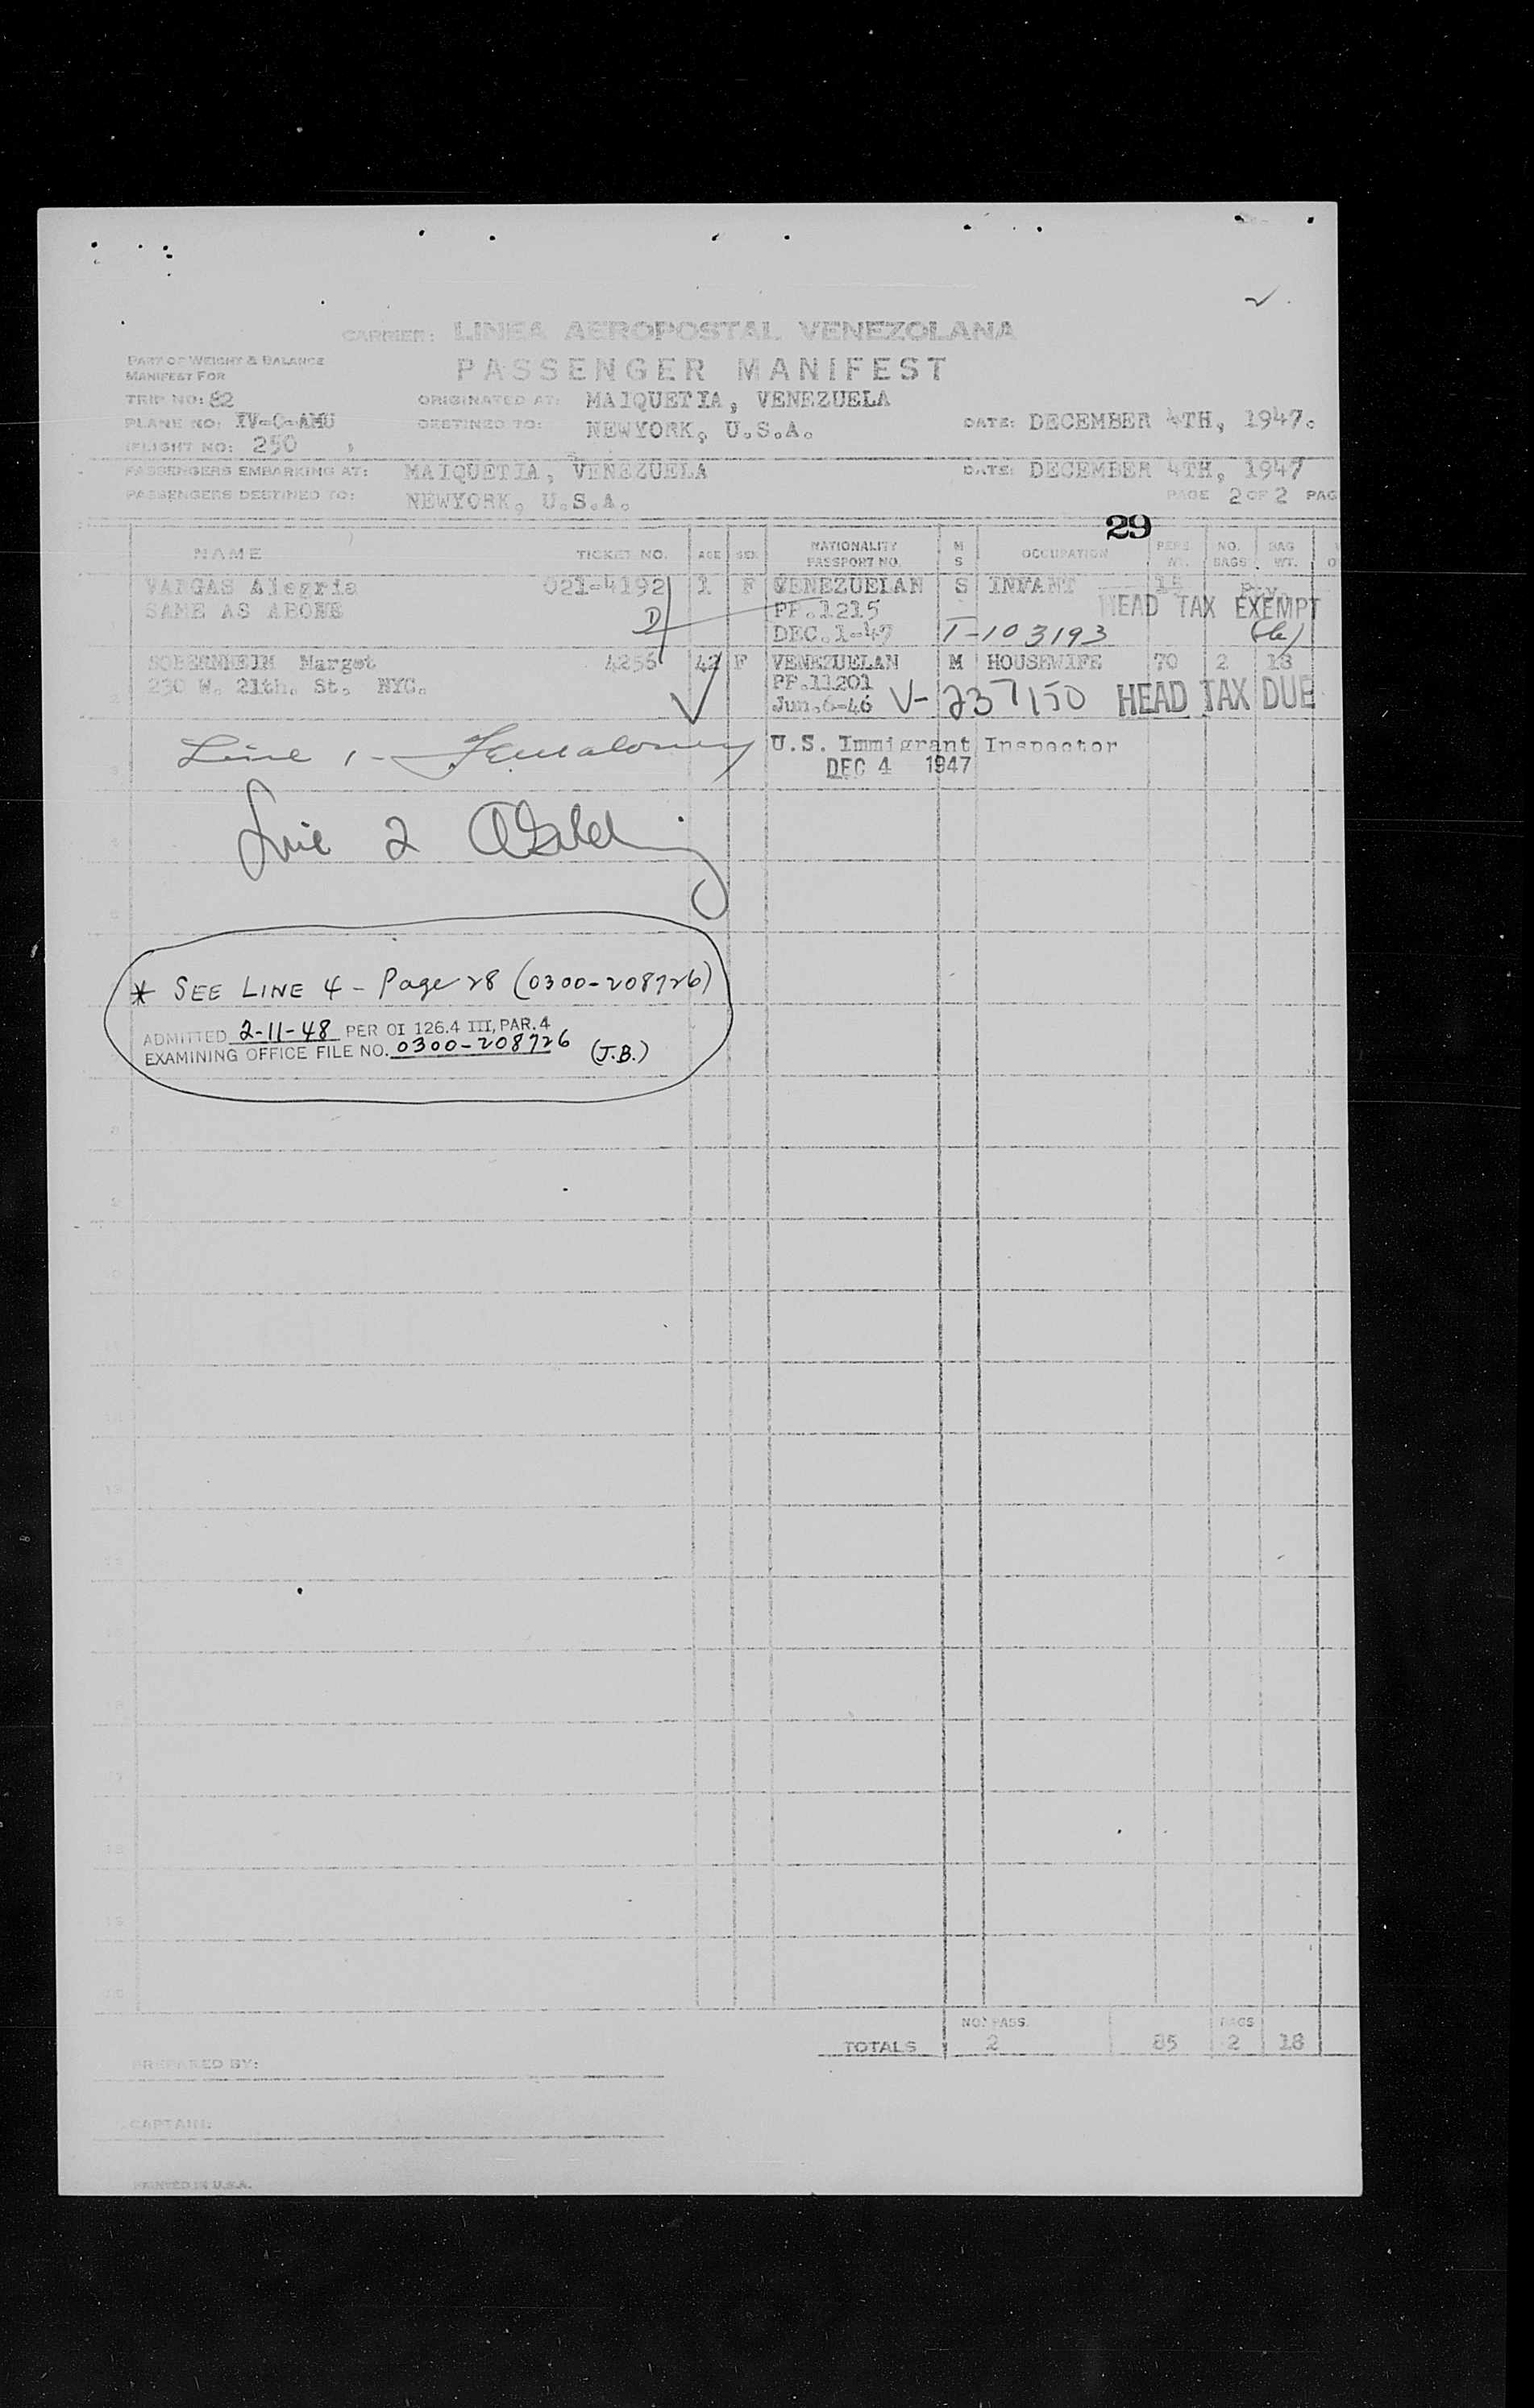 CARRIER: LINEA AEROPOSTAL VENEZOLANA
PART OF WEIGHT & BALANCE
MANIFEST FOR
PASSENGER MANIFEST
TRIP NO: 82
ORIGINATED AT: MAIQUETIA, VENEZUELA
PLANE NO: YV-C-AMU
DESTINED TO: NEWYORK, U.S.A.
DATE: DECEMBER 4TH, 1947.
FLIGHT NO: 250
PASSENGERS EMBARKING AT: MAIQUETIA, VENEZUELA
DATE: DECEMBER 4TH, 1947
PASSENGERS DESTINED TO: NEWYORK, U.S.A.
PAGE 2 OF 2 PAG
29
NAME TICKET NO. AGE SEX NATIONALITY PASSPORT NO. M S OCCUPATION PERS WT. NO. BAGS BAG WT.
VARGAS Alegria 021-4192 1 F VENEZUELAN S INFANT 15
SAME AS ABOVE D PP.1215 HEAD TAX EXEMPT
DEC.1-47 T-103193
SOBERNHEIM Margot 4256 42 F VENEZUELAN M HOUSEWIFE 70 2 18
230 W. 21th. St. NYC. PP.11201
Jun.6-46 V-237150 HEAD TAX DUE
Line 1 -
U.S. Immigrant Inspector
DEC 4 1947
Line 2
* SEE LINE 4 - Page 28 (0300-208726)
ADMITTED 2-11-48 PER OI 126.4 III, PAR. 4
EXAMINING OFFICE FILE NO. 0300-208726 (J.B.)
NO. PASS. BAGS
TOTALS 2 85 2 18
PREPARED BY:
CAPTAIN:
PRINTED IN U.S.A.